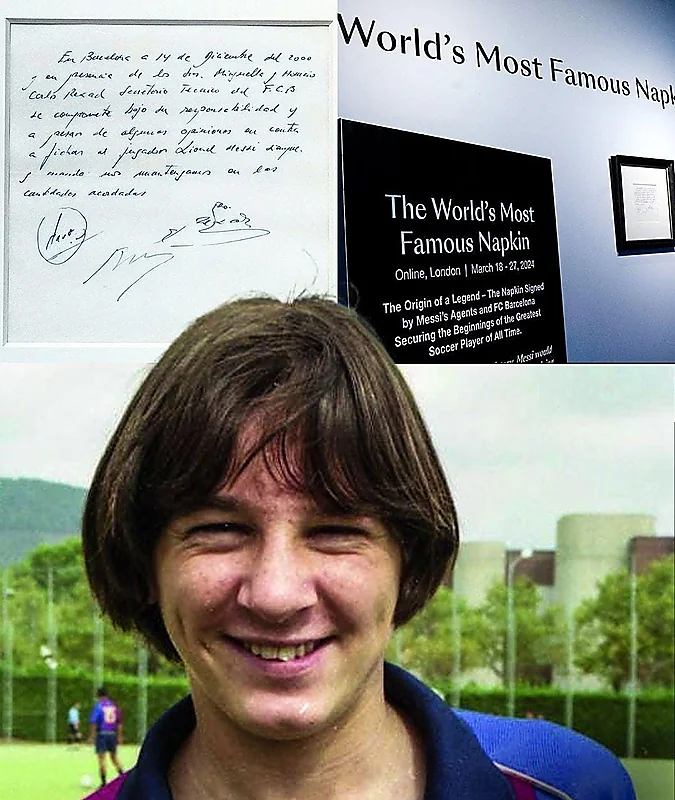 En Barcelona a 14 de Diciembre del 2000
y en presencia de los Srs. Minguella y Horacio
Carlos Rexach Secretario Tecnico del F.C.B
se compromete bajo su responsabilidad y
a pesar de algunas opiniones en contra
a fichar al jugador Lionel Messi siempre
y cuando nos mantengamos en las
cantidades acordadas
World's Most Famous Napk
The World's Most
Famous Napkin
Online, London | March 18 - 27, 2024
The Origin of a Legend – The Napkin Signed
by Messi's Agents and FC Barcelona
Securing the Beginnings of the Greatest
Soccer Player of All Time.
Messi world